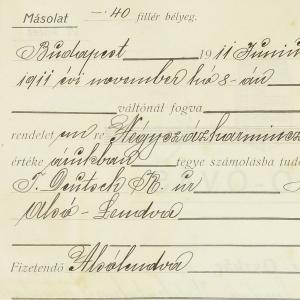 Másolat —·40 fillér bélyeg.
Budapest 1911 Június
1911 évi november hó 8-án
váltónál fogva
rendelet én re Négyszázharmincz
értéke árukban tegye számolásba tudó
T. Deutsch R. úr
Alsó-Lendva
Fizetendő Alsólendva